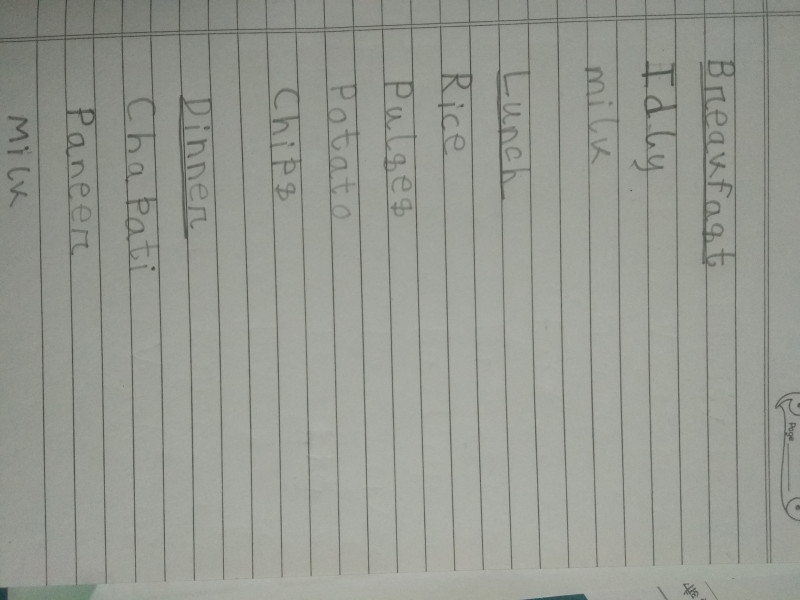 Page
Breakfast
Idly
milk
Lunch
Rice
Pulses
Potato
Chips
Dinner
Chapati
Paneer
Milk